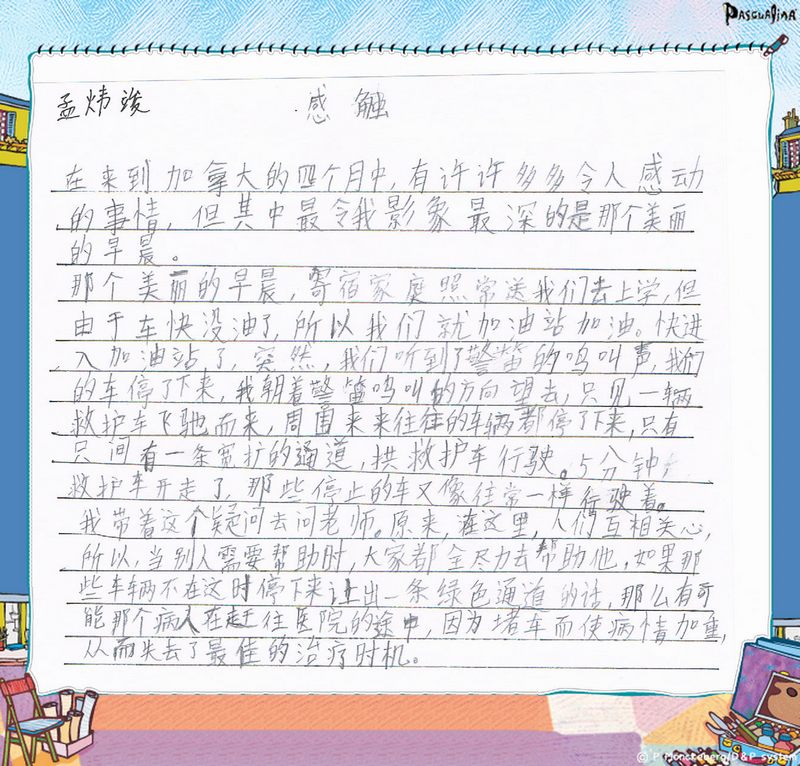 PASCUALINA
孟炜竣 感触
在来到加拿大的四个月中，有许许多多令人感动
的事情，但其中最令我影象最深的是那个美丽
的早晨。
那个美丽的早晨，寄宿家庭照常送我们去上学，但
由于车快没油了，所以我们就加油站加油。快进
入加油站了，突然，我们听到了警笛的鸣叫声，我们
的车停了下来，我朝着警笛鸣叫的方向望去，只见一辆
救护车飞驰而来，周围来来往往的车辆都停了下来，只有
只间有一条宽扩的通道，拱救护车行驶。5分钟
救护车开走了，那些停止的车又像往常一样行驶着。
我带着这个疑问去问老师。原来，在这里，人们互相关心，
所以，当别人需要帮助时，大家都全尽力去帮助他，如果那
些车辆不在这时停下来让出一条绿色通道的话，那么有可
能那个病人在赶往医院的途中，因为堵车而使病情加重，
从而失去了最佳的治疗时机。
© P Monckeberg/D&P system